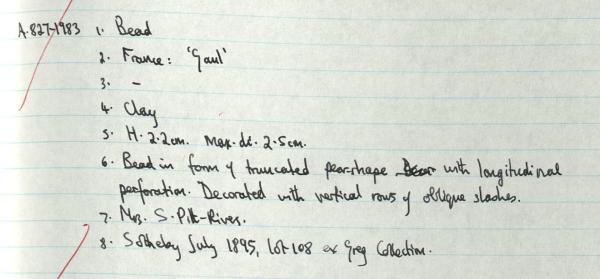 A.827-1983 1. Bead
2. France: 'Gaul'
3. -
4. Clay
5. H. 2.2cm. Max. di. 2.5cm.
6. Bead in form of truncated pear-shape with longitudinal
perforation. Decorated with vertical rows of oblique slashes.
7. Mrs. S. Pitt-Rivers.
8. Sotheby July 1895, lot 108 ex Greg Collection.